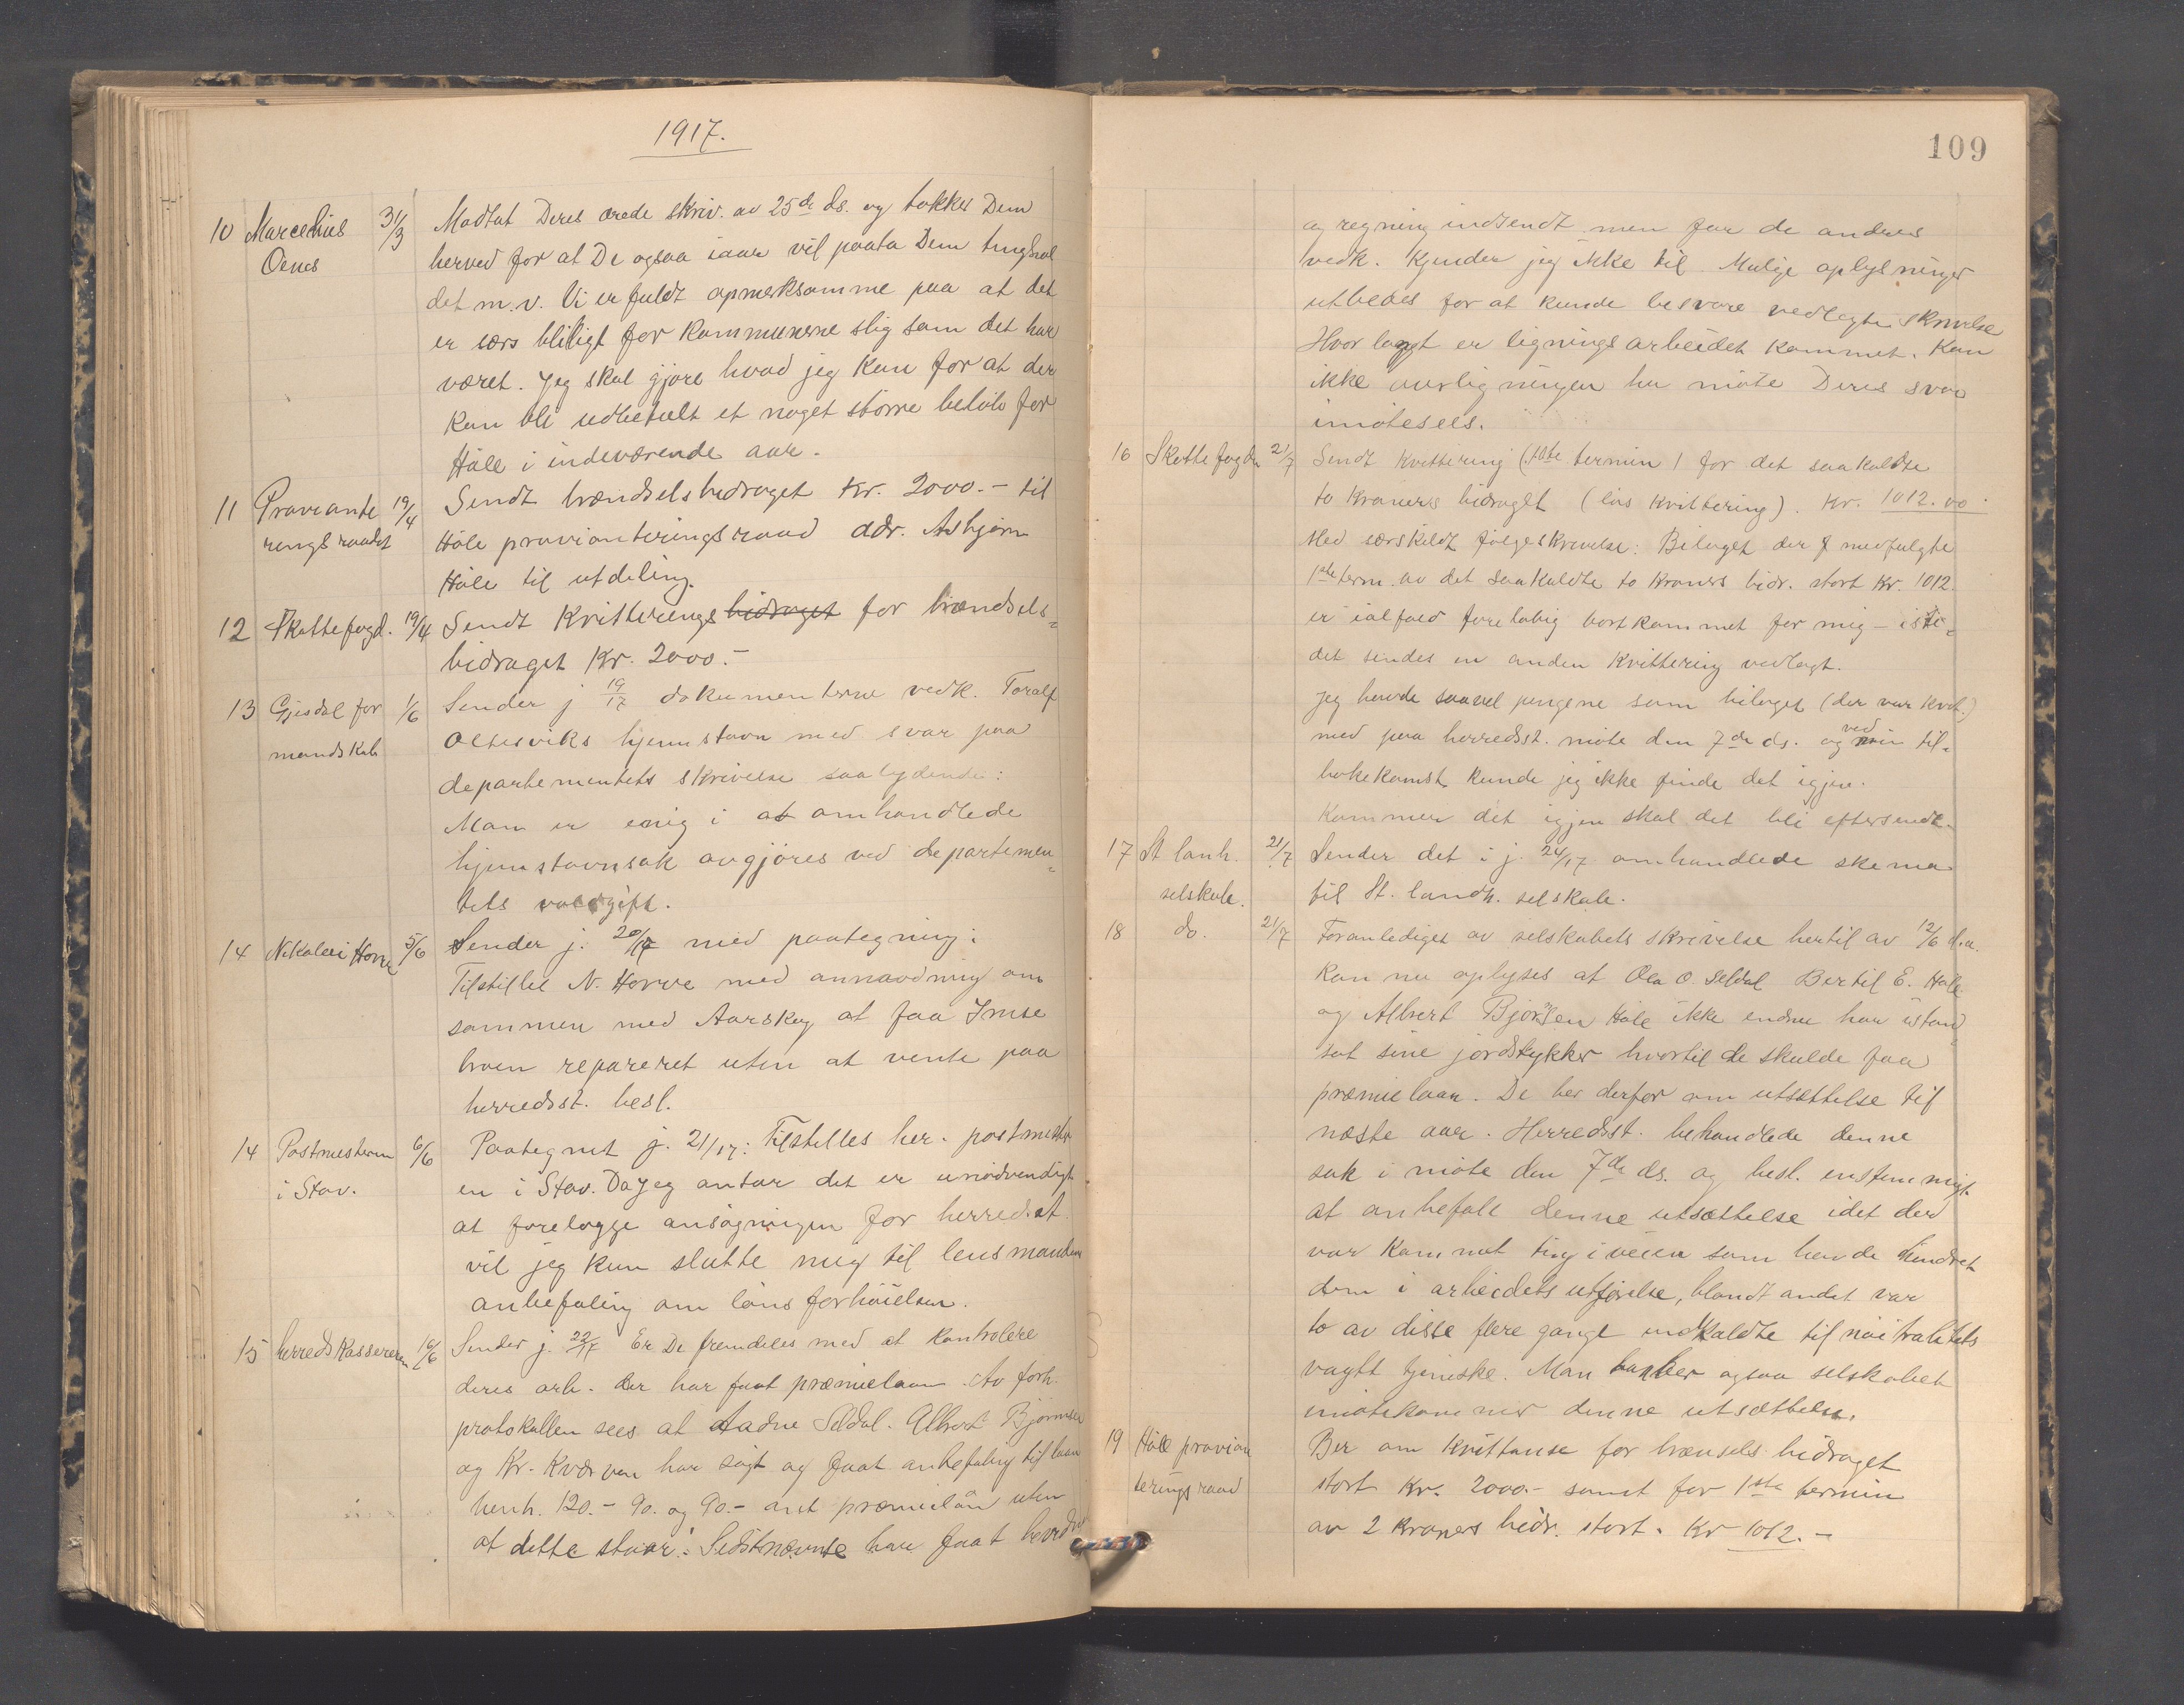 1917.
10 Marcelius Oenes 31/3 Modtat Deres ærede skriv. av 25de ds. og takker Dem
herved for at De ogsaa iaar vil paata Dem
det m.v. Vi er fuldt opmerksomme paa at det
er særs billigt for kommunerne slig som det har
været. Jeg skal gjøre hvad jeg kan for at der
kan bli udbetalt et noget større beløb for
Høle i indeværende aar.
11 Provianteringsraadet 19/4 Sendt brændselsbidraget kr. 2000.- til
Høle provianteringsraad adr. Asbjørn
Høle til utdeling.
12 Skattefogd. 19/4 Sendt kvitterings bidraget for brændsels-
bidraget Kr. 2000.-
13 Gjesdal formandskab 1/6 Sender j 19/17 dokumenterne vedk. Toralf
Oltesviks hjemstavn med svar paa
departementets skrivelse saalydende:
Man er enig i at omhandlede
hjemstavnsak avgjøres ved departemen-
tets voldgift.
14 Nikolai Horve 5/6 Sender j. 20/17 med paategning:
Tilstilles N. Horve med anmodning om
sammen med Aarskog at faa Imse
broen repareret uten at vente paa
herredsst. besl.
14 Postmesteren i Stav. 6/6 Paategnet j. 21/17: Tilstilles her. postmester
en i Stav. Da jeg antar det er unødvendigt
at forelægge ansøgningen for herredsst.
vil jeg kun slutte mig til lensmanden
anbefaling om lønsforhøielsen.
15 herredskassereren 16/6 Sender j. 22/17 Er De fremdeles med at kontrolere
deres arb. der har faat præmielaan. Av forh.
protokollen sees at Aadne Seldal. Albert Bjørnsen
og Kr. Kværven har søgt og faat anbefaling til laan
henh. 120.- 90. og 90.- ant præmielån uten
at dette staar: Sidstnævnte har faat
109
og regning indsendt men for de andres
vedk. kjender jeg ikke til. Mulige oplysninger
utbedes for at kunde besvare vedlagte skrivelse
Hvor langt er ligningsarbeidet kommet. Kan
ikke overligningen ha møte Deres svar
imøtesees.
16 Skattefogden 21/7 Sendt kvittering (1ste termin) for det saakaldte
to kroners bidraget (løs kvittering). Kr. 1012.00
Med særskildt følgeskrivelse: Bilaget der medfulgte
1ste term. av det saakaldte to kroners bidr. stort kr. 1012.
er ialfald foreløbig bortkommet for mig – iste-
det sendes en anden kvittering vedlagt.
Jeg havde saavel pengene som bilaget (der var kvit.)
med paa herredsst. møte den 7de ds. og ved min til-
bakekomst kunde jeg ikke finde det igjen.
Kommer det igjen skal det bli eftersendt.
17 St. lanh. selskab. 21/7 Sender det i j. 24/17 omhandlede skema
til St. landh. selskab.
18 do. 21/7 Foranlediget av selskabets skrivelse hertil av 12/6 d.a.
kan nu oplyses at Ola O. Seldal Bertil E. Høle
og Albert Bjørnsen Høle ikke endnu har istand
sat sine jordstykker hvortil de skulde faa
præmielaan. De ber derfor om utsættelse til
næste aar. Herredsst. behandlede denne
sak i møte den 7de ds. og besl. enstemmigt
at anbefale denne utsættelse idet der
var kommet ting i veien som havde hindret
dem i arbeidets utførelse, blandt andet var
to av disse flere gange indkaldte til nøitralitets
vagtt tjeneste. Man haaber ogsaa selskabet
imøtekommer denne utsættelse.
19 Høle provianteringsraad Ber om kvittanse for brænsels bidraget
stort kr. 2000.- samt for 1ste termin
av 2 kroners bidr. stort. Kr 1012.-